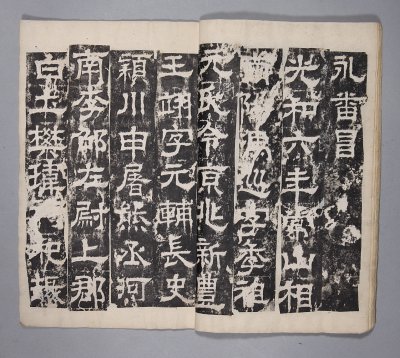 永番昌
光和六年常山相
南陽馮巡字季祖
元氏令京兆新豐
王翊字元輔長史
潁川申屠熊丞河
南李邵左尉上郡
白土樊瑋祠祀掾